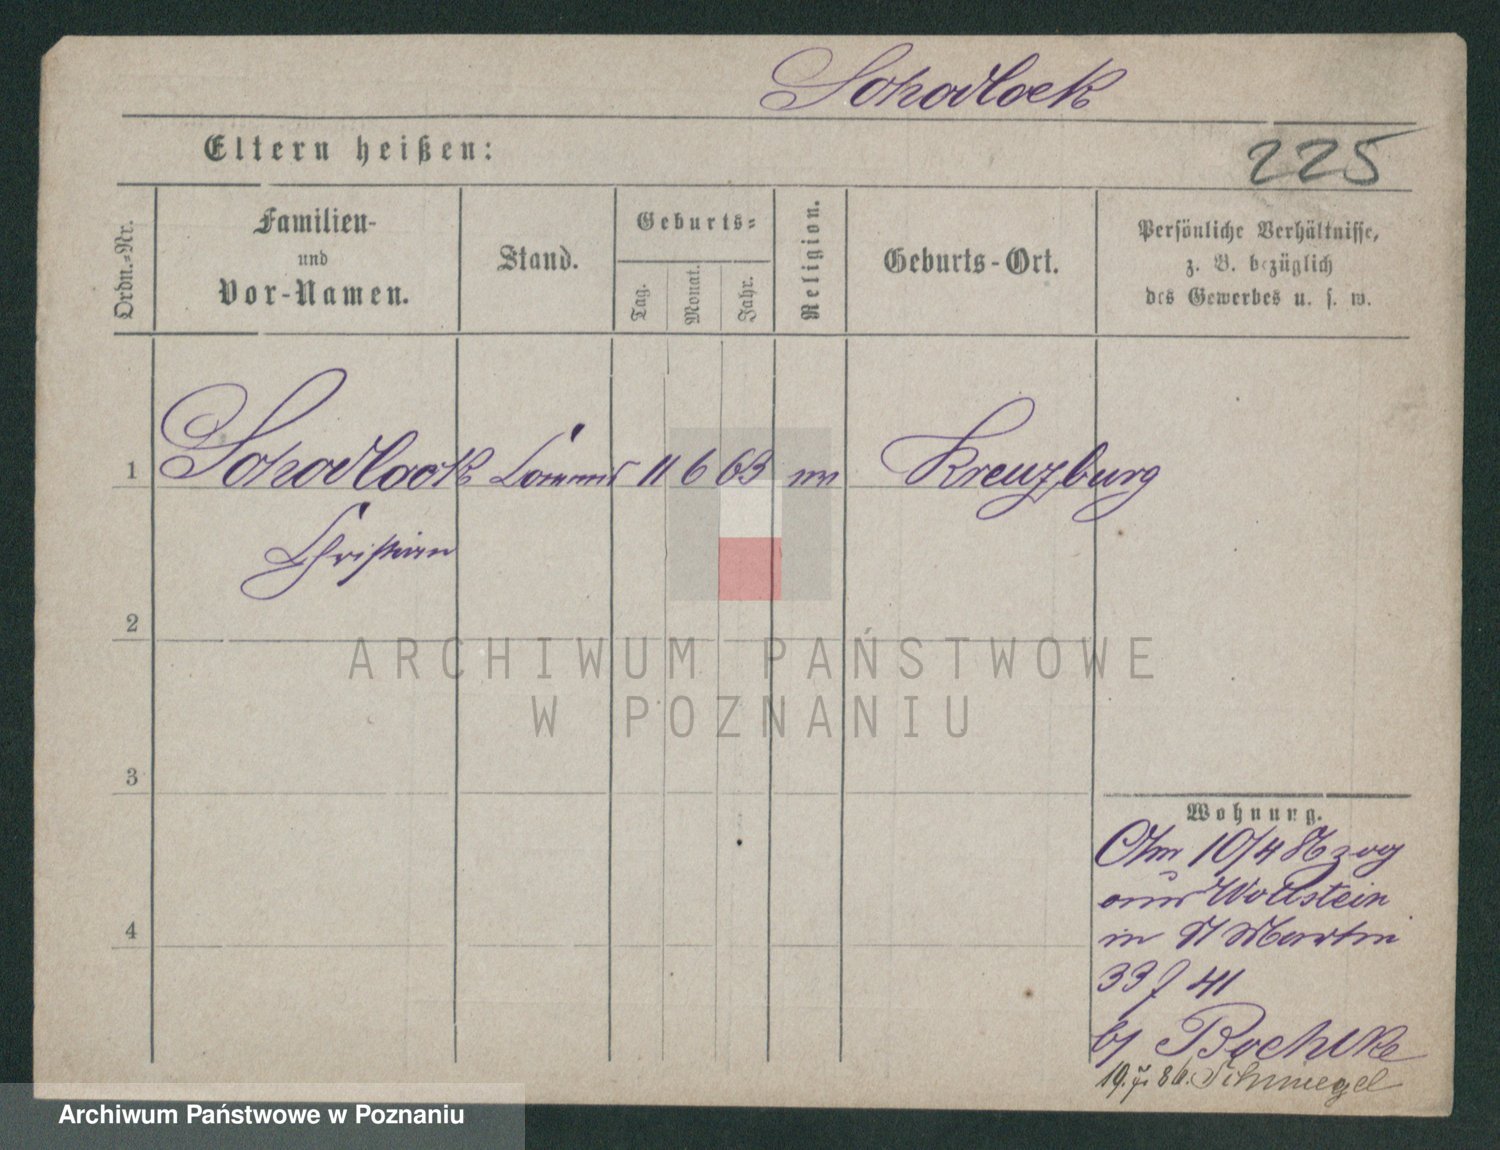 Schadlock
Eltern heißen:
225
Ordn.-Nr.
Familien-
und
Vor-Namen.
Stand.
Geburts-
Tag.
Monat.
Jahr.
Religion.
Geburts-Ort.
Persönliche Verhältnisse,
z. B. bezüglich
des Gewerbes u. s. w.
1 Schadlock 11 6 63 Kreuzburg
Christian
2
ARCHIWUM PAŃSTWOWE
W POZNANIU
3
Wohnung.
10/4 zog
aus Wollstein
in St Martin
33 f 41
4
bei
19. 86. Schmiegel
Archiwum Państwowe w Poznaniu